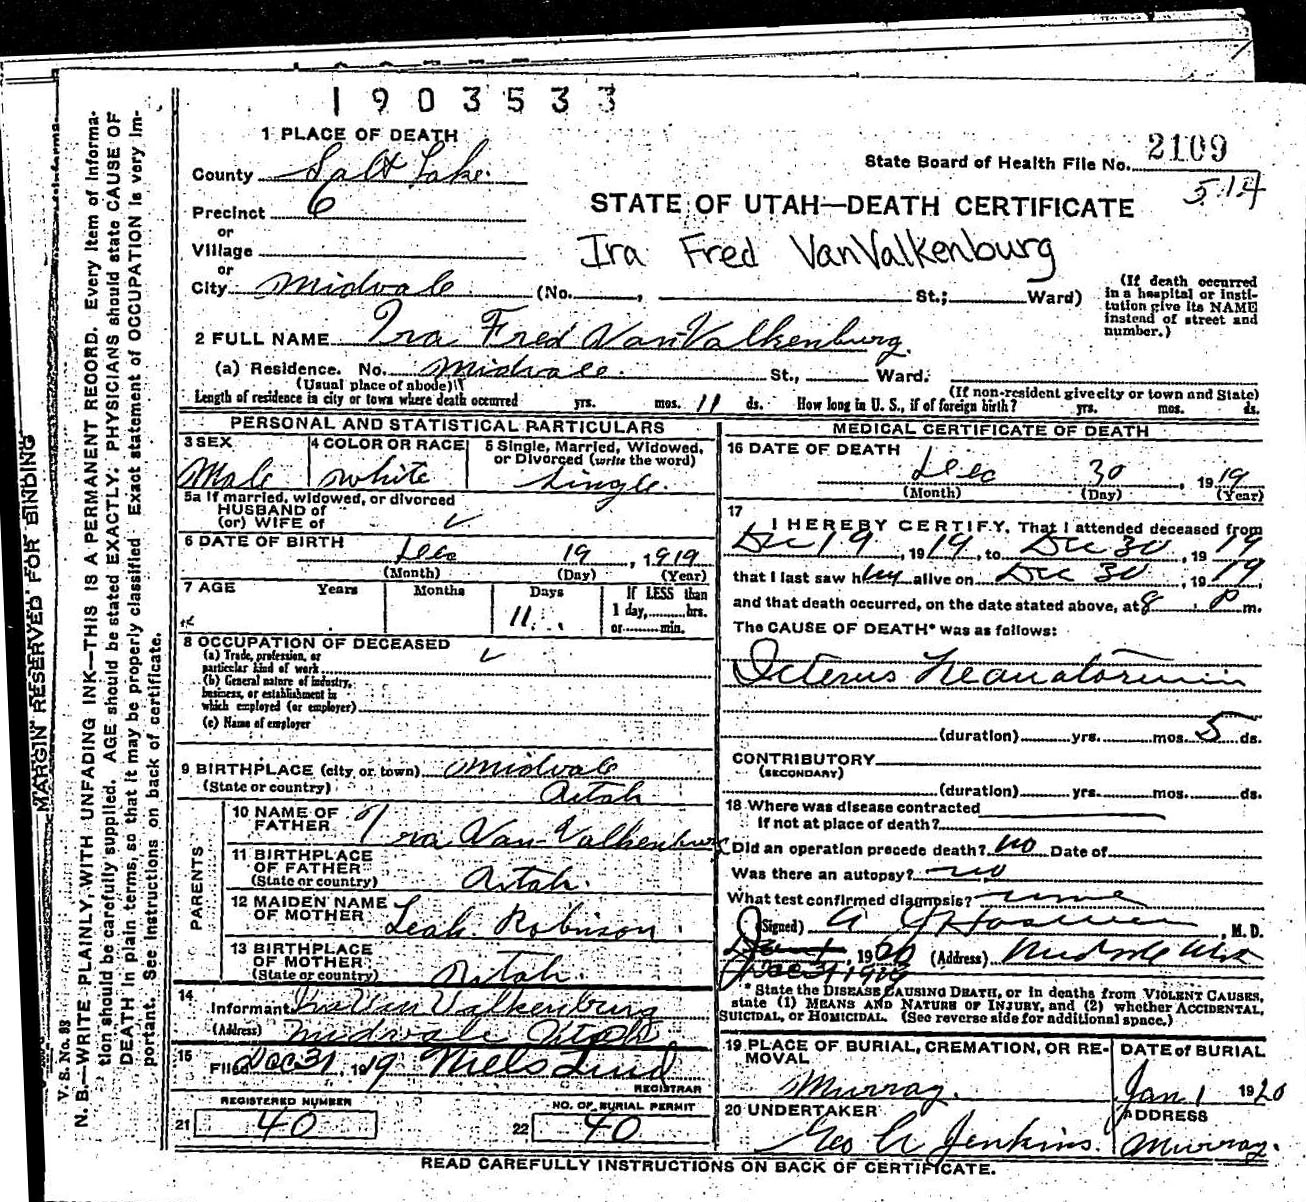 1903533
1 PLACE OF DEATH
2109
State Board of Health File No.
514
County Salt Lake.
Precinct 6
STATE OF UTAH—DEATH CERTIFICATE
or
Village
Ira Fred VanValkenburg
or
City Midvale (No. , St.; Ward)
(If death occurred in a hospital or institution give its NAME instead of street and number.)
2 FULL NAME Ira Fred Van-Valkenburg.
(a) Residence. No. Midvale. St., Ward.
(Usual place of abode) (If non-resident give city or town and State)
Length of residence in city or town where death occurred yrs. mos. 11 ds. How long in U. S., if of foreign birth? yrs. mos. ds.
PERSONAL AND STATISTICAL PARTICULARS
3 SEX
Male
4 COLOR OR RACE
White
5 Single, Married, Widowed, or Divorced (write the word)
Single.
5a If married, widowed, or divorced
HUSBAND of
(or) WIFE of
6 DATE OF BIRTH Dec 19, 1919
(Month) (Day) (Year)
7 AGE Years Months Days If LESS than
11 1 day, hrs.
or min.
8 OCCUPATION OF DECEASED
(a) Trade, profession, or
particular kind of work
(b) General nature of industry,
business, or establishment in
which employed (or employer)
(c) Name of employer
9 BIRTHPLACE (city or town) Midvale
(State or country) Utah
PARENTS
10 NAME OF FATHER Ira Van-Valkenburg
11 BIRTHPLACE OF FATHER
(State or country) Utah.
12 MAIDEN NAME OF MOTHER Leah Robinson
13 BIRTHPLACE OF MOTHER
(State or country) Utah.
14
Informant Ira Van Valkenburg
(Address) Midvale Utah
15
Filed Dec 31, 1919 Niels Lind
REGISTRAR
REGISTERED NUMBER
21 40
NO. OF BURIAL PERMIT
22 40
MEDICAL CERTIFICATE OF DEATH
16 DATE OF DEATH
Dec 30, 1919
(Month) (Day) (Year)
17
I HEREBY CERTIFY, That I attended deceased from
Dec 19, 1919, to Dec 30, 1919
that I last saw h alive on Dec 30, 1919,
and that death occurred, on the date stated above, at 8 P m.
The CAUSE OF DEATH* was as follows:
Icterus Neanatorium
(duration) yrs. mos. 5 ds.
CONTRIBUTORY
(SECONDARY)
(duration) yrs. mos. ds.
18 Where was disease contracted
If not at place of death?
Did an operation precede death? no Date of
Was there an autopsy? no
What test confirmed diagnosis? none
(Signed) , M. D.
Jan 1, 1920 (Address) Midvale Utah
Dec 31 1919
* State the DISEASE CAUSING DEATH, or in deaths from VIOLENT CAUSES,
state (1) MEANS AND NATURE OF INJURY, and (2) whether ACCIDENTAL,
SUICIDAL, OR HOMICIDAL. (See reverse side for additional space.)
19 PLACE OF BURIAL, CREMATION, OR REMOVAL
Murray.
DATE of BURIAL
Jan 1 1920
20 UNDERTAKER
Geo A Jenkins.
ADDRESS
Murray.
READ CAREFULLY INSTRUCTIONS ON BACK OF CERTIFICATE.
MARGIN RESERVED FOR BINDING
V. S. No. 83
N. B.—WRITE PLAINLY, WITH UNFADING INK—THIS IS A PERMANENT RECORD. Every item of informa-
tion should be carefully supplied. AGE should be stated EXACTLY. PHYSICIANS should state CAUSE OF
DEATH in plain terms, so that it may be properly classified. Exact statement of OCCUPATION is very im-
portant. See instructions on back of certificate.